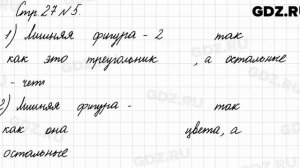 GDZ.RU
Стр. 27 № 5.
1) Лишняя фигура - 2 так
как это треугольник , а остальные
- чет
2) Лишняя фигура - так
как она цвета, а
остальные
GDZ.RU